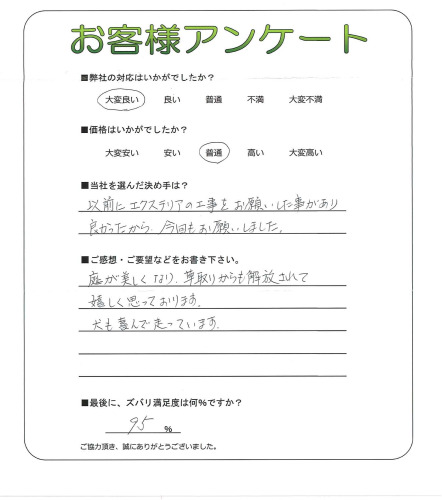 お客様アンケート
■弊社の対応はいかがでしたか？
大変良い 良い 普通 不満 大変不満
■価格はいかがでしたか？
大変安い 安い 普通 高い 大変高い
■当社を選んだ決め手は？
以前にエクステリアの工事をお願いした事があり
良かったから、今回もお願いしました。
■ご感想・ご要望などをお書き下さい。
庭が美しくなり、草取りからも解放されて
嬉しく思っております。
犬も喜んで走っています。
■最後に、ズバリ満足度は何％ですか？
95 %
ご協力頂き、誠にありがとうございました。